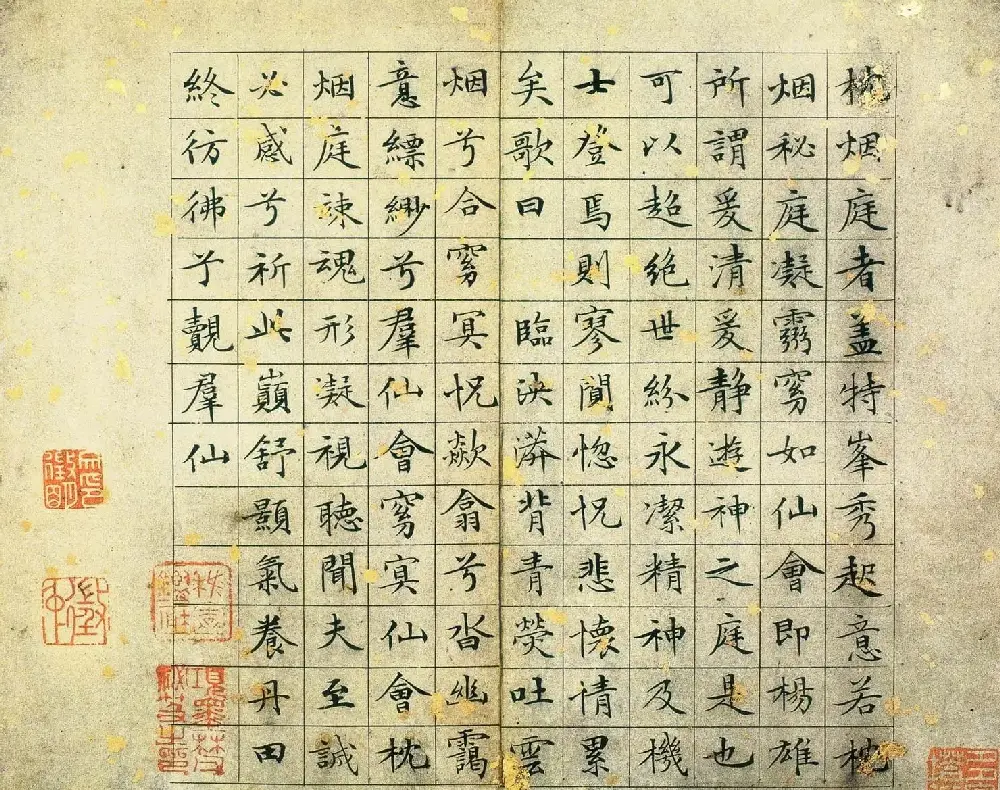 枕烟庭者盖特峯秀起意若枕
烟秘庭凝霛窈如仙會即楊雄
所謂爰清爰静遊神之庭是也
可以超絶世紛永潔精神及機
士登焉則寥闃惚怳悲懷情累
矣歌曰　臨泱漭背青熒吐雲
烟兮合窈冥怳欻翕兮沓幽靄
意縹緲兮羣仙會窈冥仙會枕
烟庭竦魂形凝視聽聞夫至誠
必感兮祈此巔舒顥氣養丹田
終彷彿兮覿羣仙